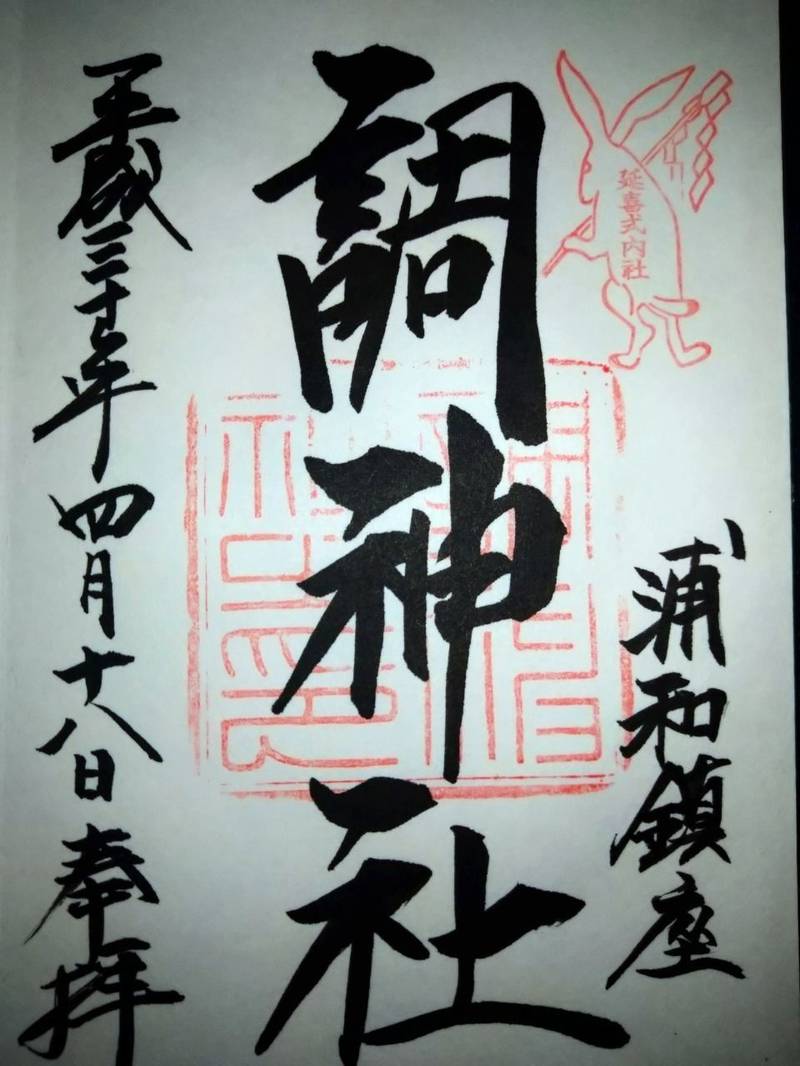 延喜式内社
浦和鎮座
調神社
平成三十年四月十八日奉拝